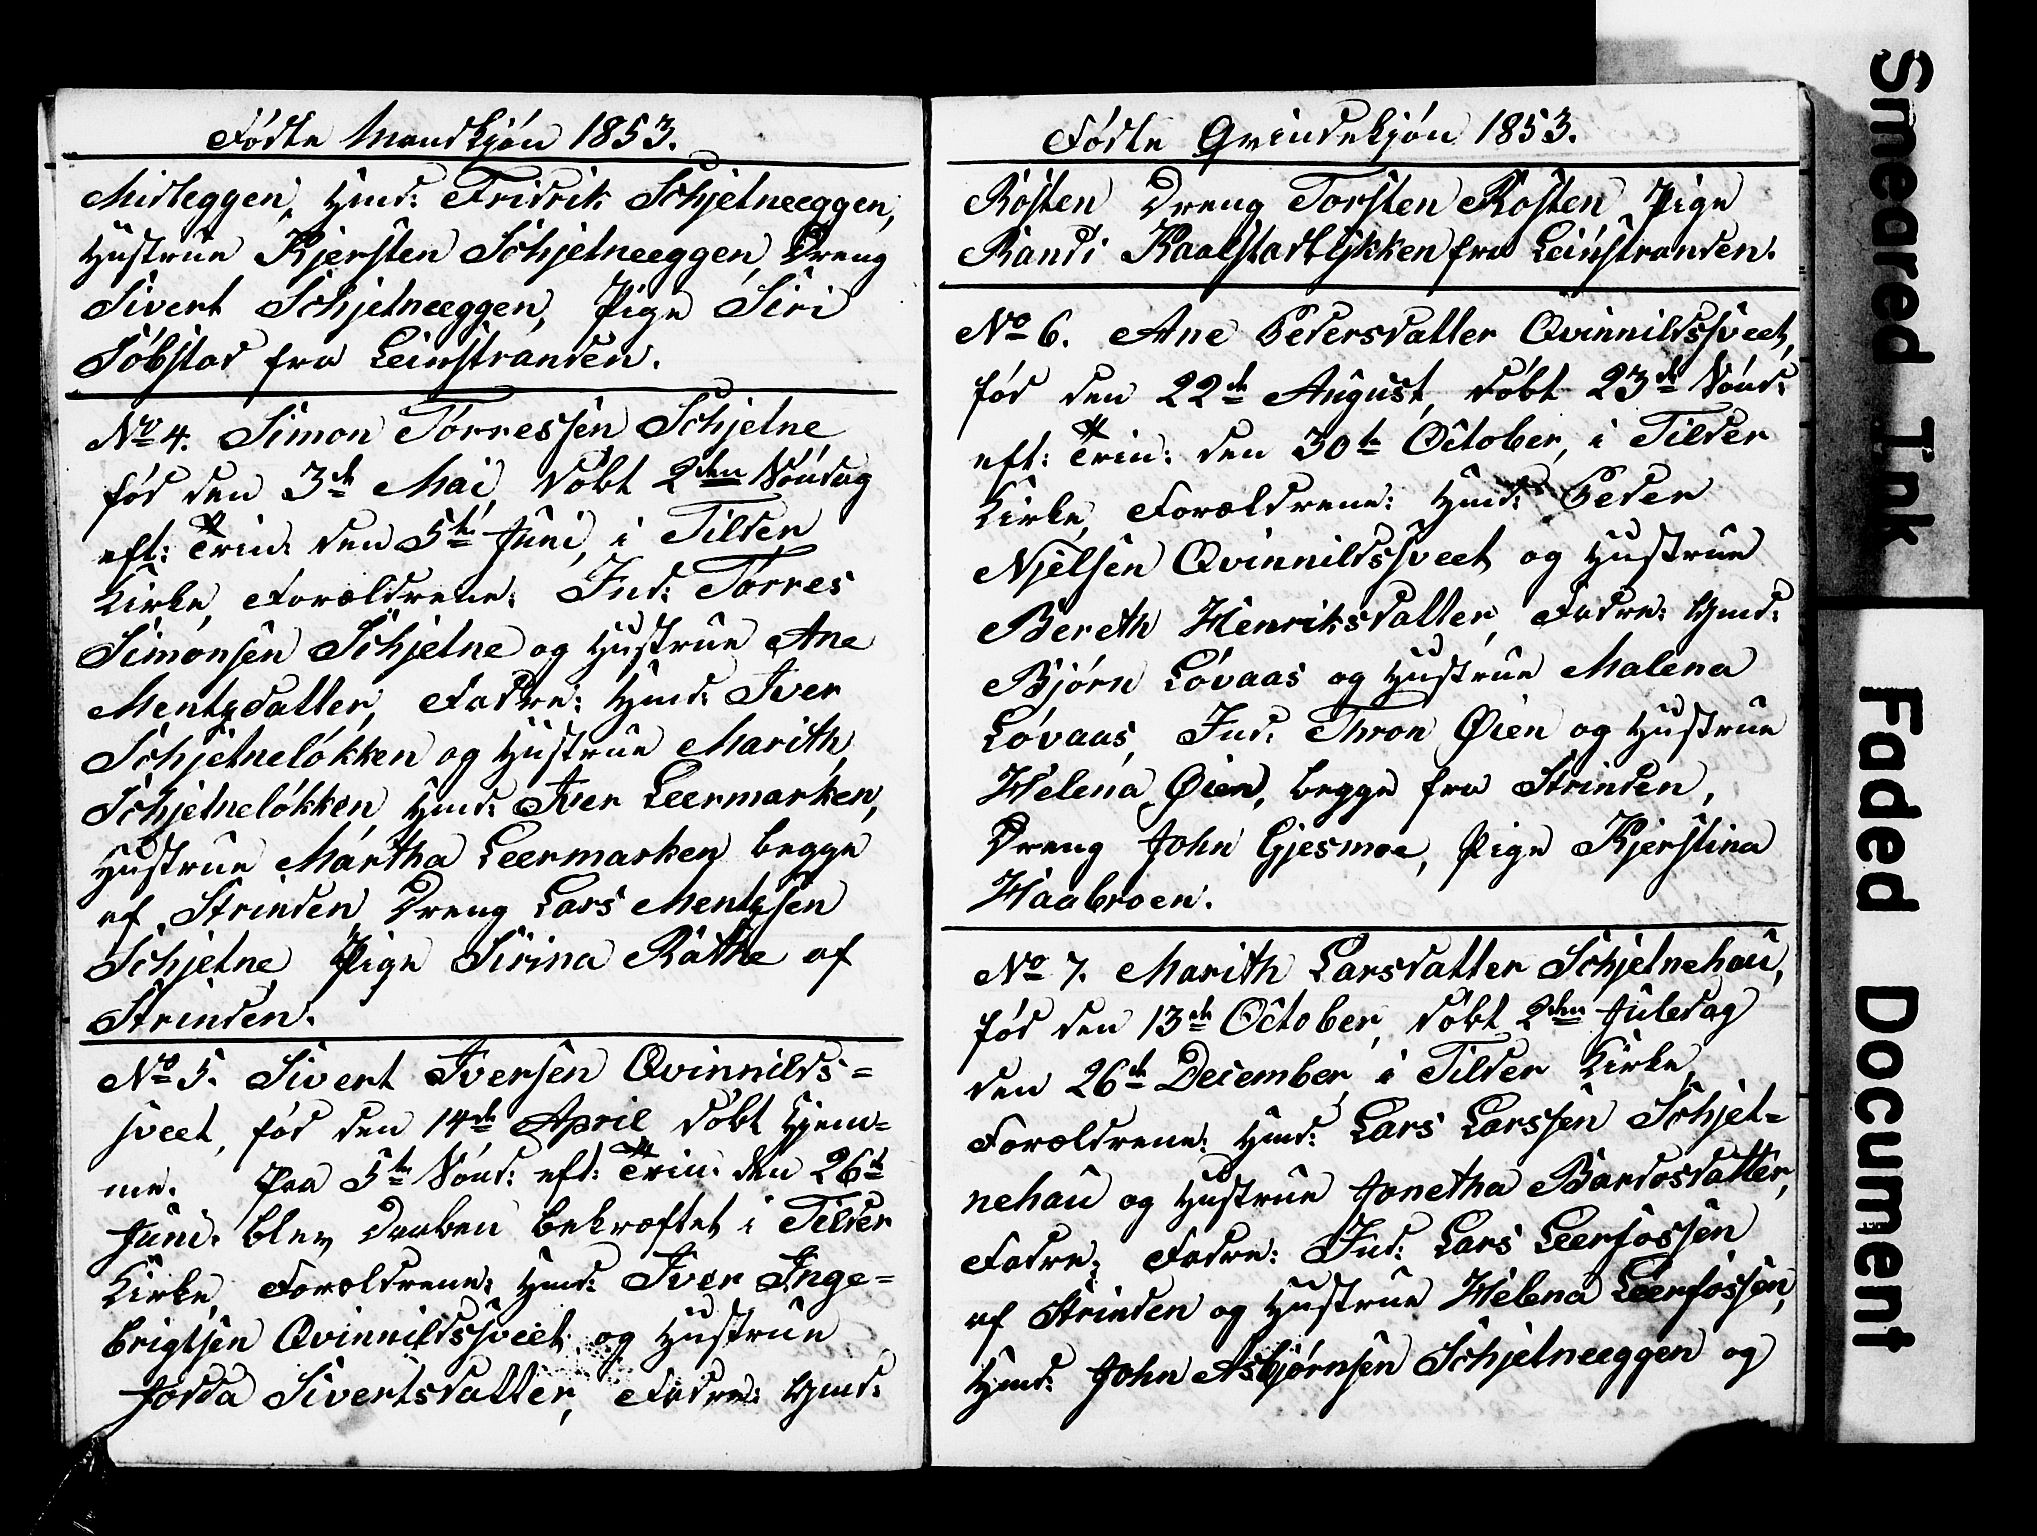 Fødte Mandkjøn 1853.
Midteggen, Hmd: Fridrik Schjelneeggen,
Hustrue Kjersten Schjelneeggen, Dreng
Sivert Schjelneeggen, Pige Siri
Søbstad fra Leinstranden.
No 4. Simon Torressen Schjelne
fød den 3de Mai, døbt 2den Søndag
eft: Trin: den 5te Juni, i Tilder
Kirke, Forældrene: Ind: Torres
Simonsen Schjelne og Hustrue Ane
Mentzdatter, Fadre: Hmd: Iver
Schjelneløkken og Hustrue Marith
Schjelneløkken, Hmd: Iver Leermarken,
Hustrue Martha Leermarken begge
af Strinden, Dreng Lars Mentzsen
Schjelne, Pige Sirina Rathe af
Strinden.
No 5. Sivert Iversen Qvinnilds=
sveet, fød den 14de April døbt Hjem=
me. Paa 5te Sønd: eft: Trin: den 26te
Juni. blev Daaben bekræftet i Tilder
Kirke, Forældrene: Hmd: Iver Inge=
brigtsen Qvinnildssveet og Hustrue
Jodda Sivertsdatter, Fadre: Hmd:
Fødte Qvindekjøn 1853.
Røsten Dreng Torsten Røsten Pige
Randi Kaalstadlykken fra Leinstranden.
No 6. Ane Pedersdatter Qvinnildssveet,
fød den 22de August, døbt 23de Sønd:
eft: Trin: den 30te October, i Tilder
Kirke, Forældrene: Hmd: Peder
Njelsen Qvinnildssveet og Hustrue
Bereth Henriksdatter, Fadre: Hmd:
Bjørn Løvaas og Hustrue Malena
Løvaas, Ind: Thron Øien og Hustrue
Helena Øien, begge fra Strinden,
Dreng John Gjesmoe, Pige Kjerstina
Haabroen.
No 7. Marith Larsdatter Schjelnehau,
fød den 13de October, døbt 2den Juledag
den 26de December, i Tilder Kirke,
Forældrene: Hmd: Lars Larssen Schjel=
nehau og Hustrue Jonetha Bardosdatter,
Fadre; Fadre: Ind: Lars Leerfossen
af Strinden og Hustrue Helena Leerfossen,
Hmd: John Asbjørnsen Schjelneeggen og
Smeared Ink
Faded Document